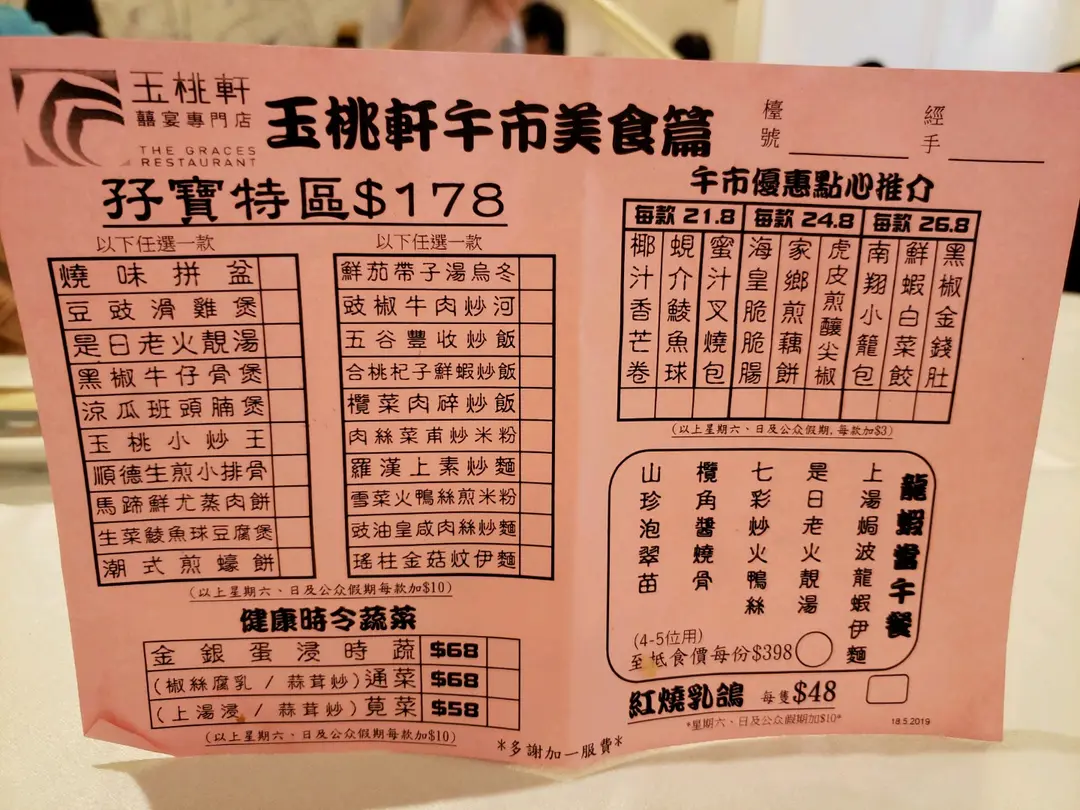 玉桃軒
囍宴專門店
THE GRACES
RESTAURANT
玉桃軒午市美食篇
檯號
經手
孖寶特區$178
以下任選一款
燒味拼盆
豆豉滑雞煲
是日老火靚湯
黑椒牛仔骨煲
涼瓜班頭腩煲
玉桃小炒王
順德生煎小排骨
馬蹄鮮尤蒸肉餅
生菜鯪魚球豆腐煲
潮式煎蠔餅
以下任選一款
鮮茄帶子湯烏冬
豉椒牛肉炒河
五谷豐收炒飯
合桃杞子鮮蝦炒飯
欖菜肉碎炒飯
肉絲菜甫炒米粉
羅漢上素炒麵
雪菜火鴨絲煎米粉
豉油皇咸肉絲炒麵
瑤柱金菇炆伊麵
(以上星期六、日及公众假期每款加$10)
健康時令蔬菜
金銀蛋浸時蔬 $68
(椒絲腐乳 / 蒜茸炒)通菜 $68
(上湯浸 / 蒜茸炒)莧菜 $58
(以上星期六、日及公众假期每款加$10)
*多謝加一服費*
午市優惠點心推介
每款 21.8 每款 24.8 每款 26.8
椰汁香芒卷
蜆介鯪魚球
蜜汁叉燒包
海皇脆脆腸
家鄉煎藕餅
虎皮煎釀尖椒
南翔小籠包
鮮蝦白菜餃
黑椒金錢肚
(以上星期六、日及公众假期,每款加$3)
龍蝦當午餐
上湯焗波龍蝦伊麵
是日老火靚湯
七彩炒火鴨絲
欖角醬燒骨
山珍泡翠苗
(4-5位用)
至抵食價每份$398
紅燒乳鴿 每隻$48
*星期六、日及公众假期加$10*
18.5.2019